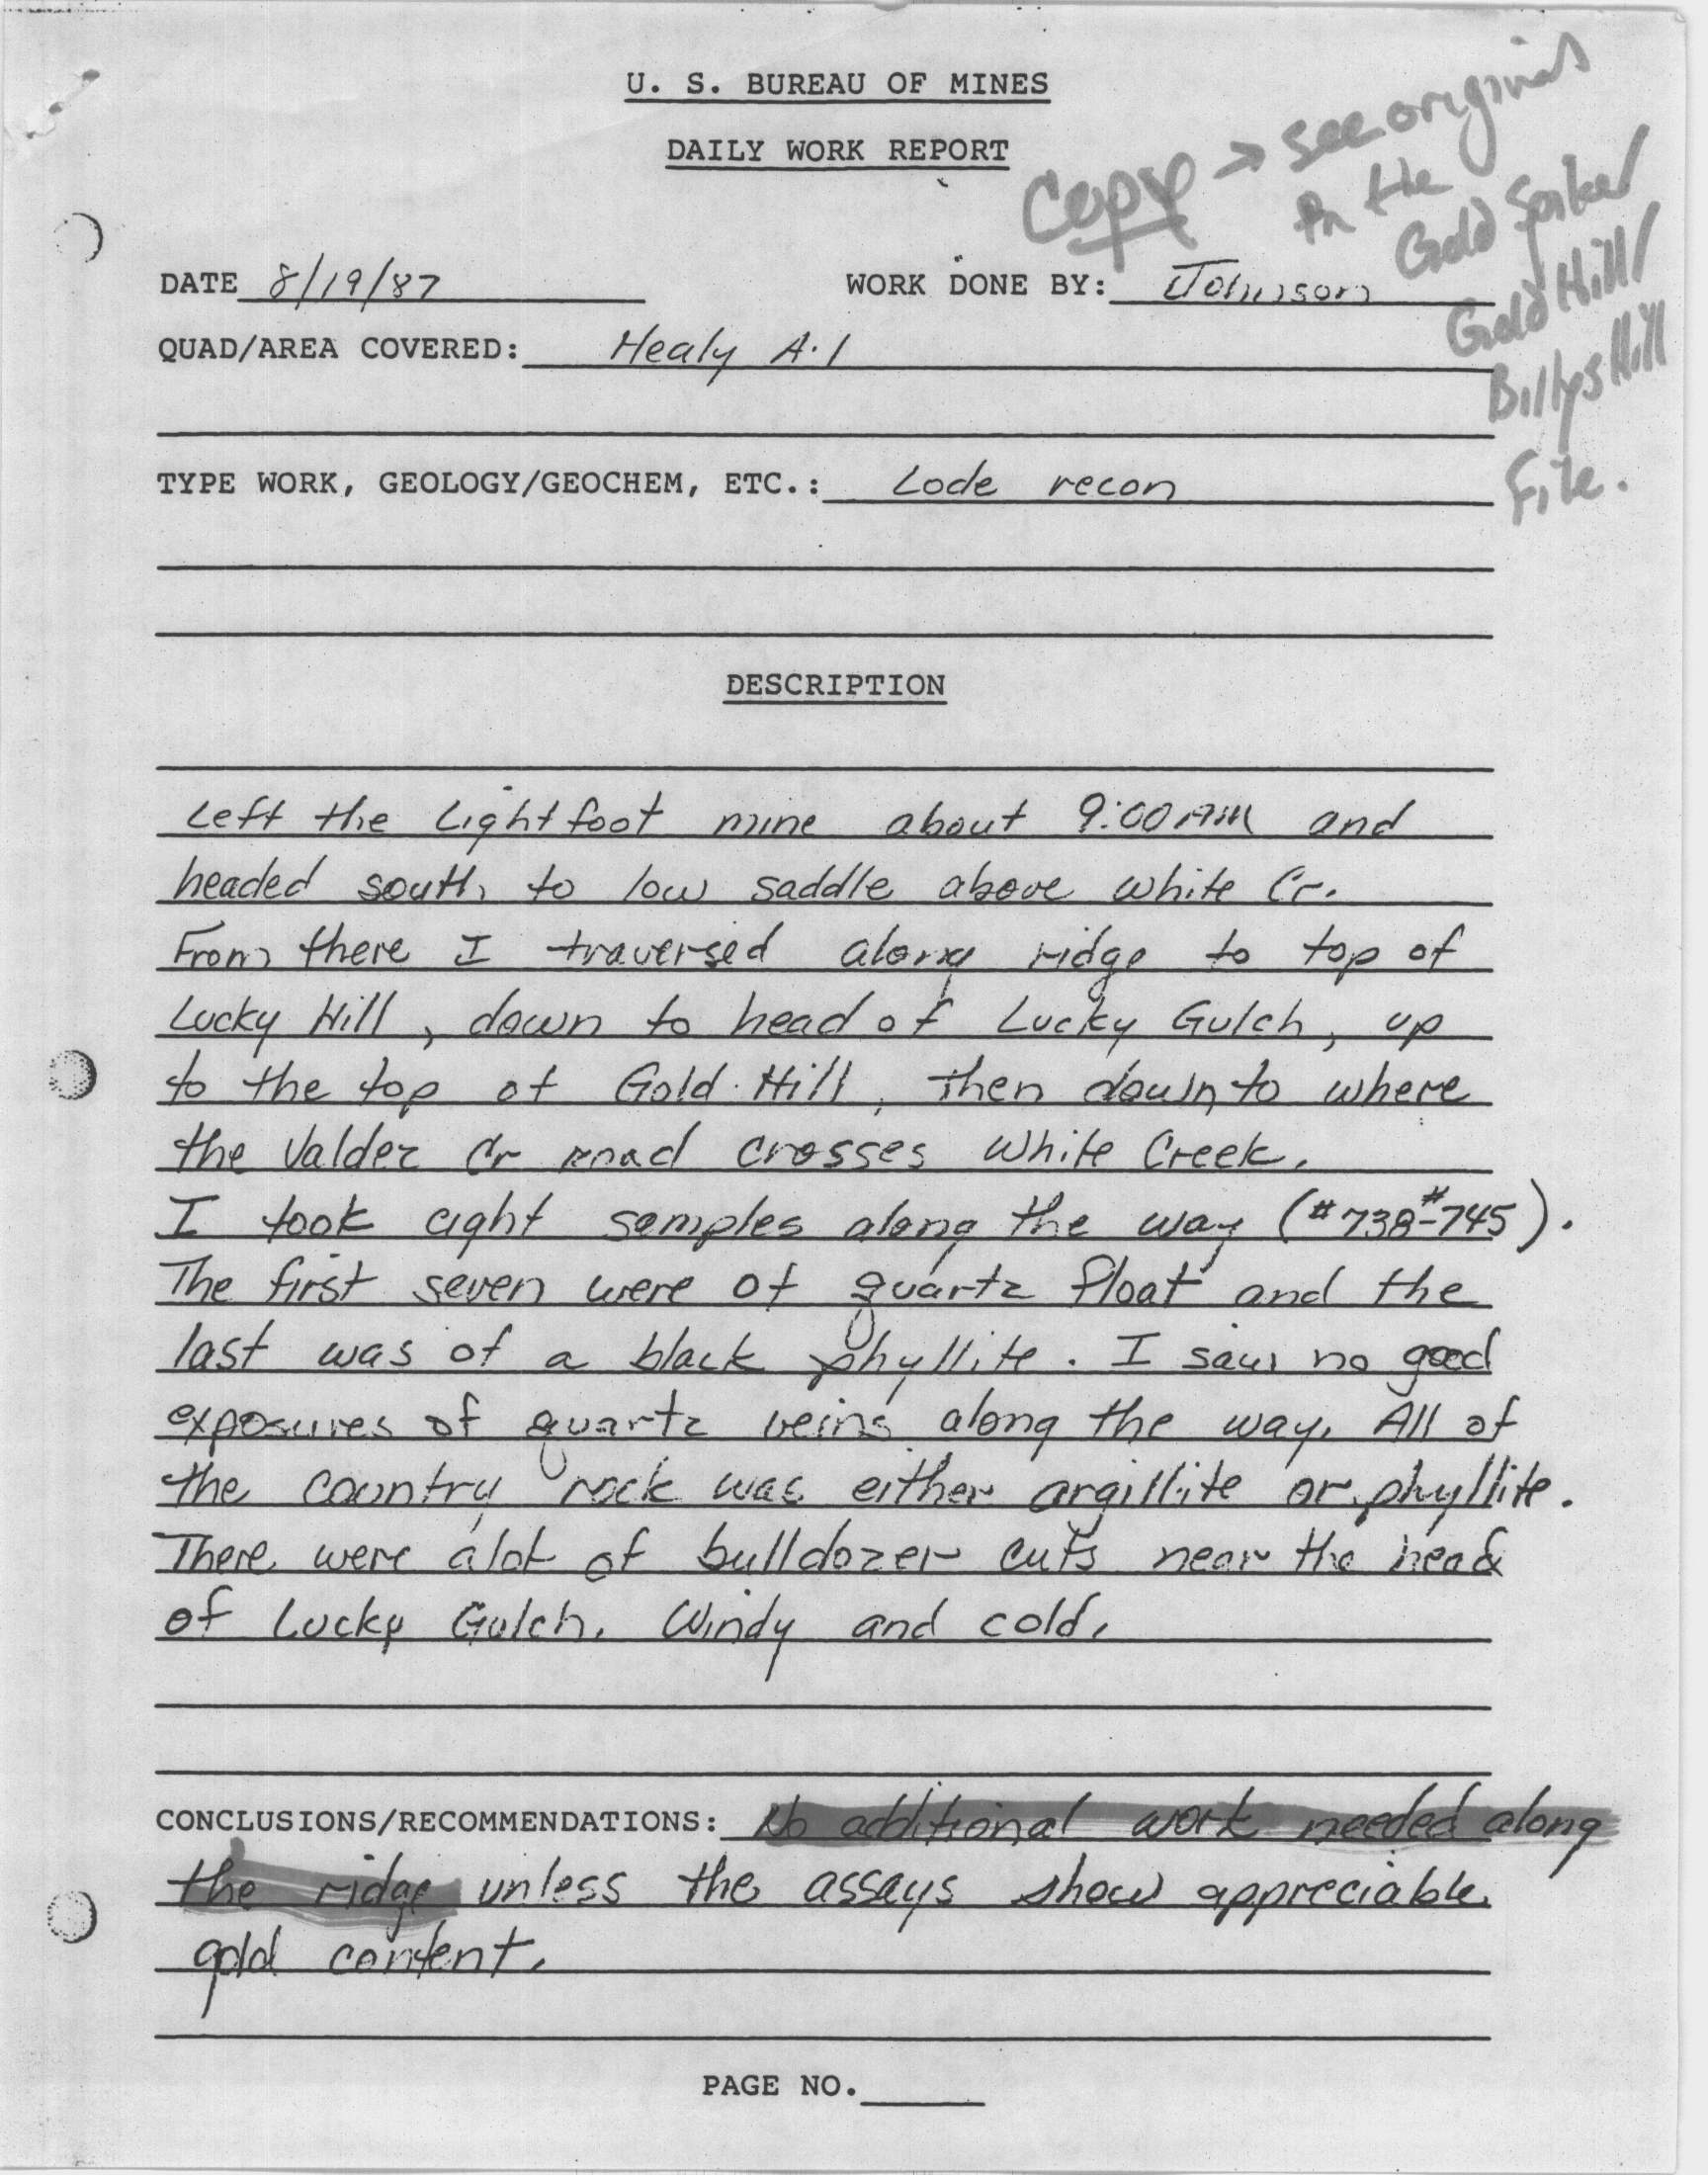 U. S. BUREAU OF MINES
DAILY WORK REPORT
Copy → see original
in the
Gold Spike/
Gold Hill/
Billys Hill
File.
DATE 8/19/87 WORK DONE BY: Johnson
QUAD/AREA COVERED: Healy A-1
TYPE WORK, GEOLOGY/GEOCHEM, ETC.: Lode recon
DESCRIPTION
Left the Lightfoot mine about 9:00 AM and
headed south to low saddle above White Cr.
From there I traversed along ridge to top of
Lucky Hill, down to head of Lucky Gulch, up
to the top of Gold Hill, then down to where
the Valdez Cr road crosses White Creek.
I took eight samples along the way (#738-#745).
The first seven were of quartz float and the
last was of a black phyllite. I saw no good
exposures of quartz veins along the way. All of
the country rock was either argillite or phyllite.
There were alot of bulldozer cuts near the head
of Lucky Gulch. Windy and cold.
CONCLUSIONS/RECOMMENDATIONS: No additional work needed along
the ridge unless the assays show appreciable
gold content.
PAGE NO.